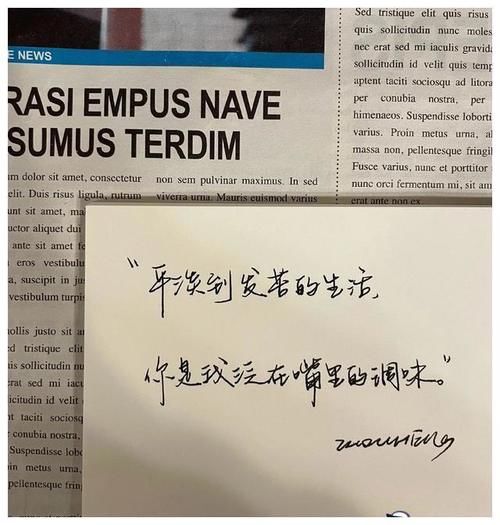 E NEWS
RASI EMPUS NAVE
SUMUS TERDIM
m dolor sit amet, consectetur
elit. Duis risus ligula, rutrum
sit amet, ma
uctor aliquet dui
ante sit amet
eros vestibulum
a, suscipit in jus
vestibulum turpis
mollis justo sit am
d tristique elit
sollicitudin nunc
erat sed mi iaculis
icitudin id velit
t taciti sociosqu
conubia nostra,
Suspendisse lobo
in metus urna,
pellentesque fringi
nunc et portt
non sem pulvinar maximus. In sed
viverra urna. Mauris euismod varius
Sed tristique elit quis risus
quis sollicitudin nunc moles
nec erat sed mi iaculis gravida
sollicitudin id velit quis temp
aptent taciti sociosqu ad litora
per conubia nostra, per
himenaeos. Suspendisse loborti
varius. Proin metus urna, al
massa non, pellentesque fringil
Fusce varius, nunc et porttitor
nunc orci fermentum mi, sit am
erat ante non ex.
“平淡到发苦的生活,
你是我含在嘴里的调味。”